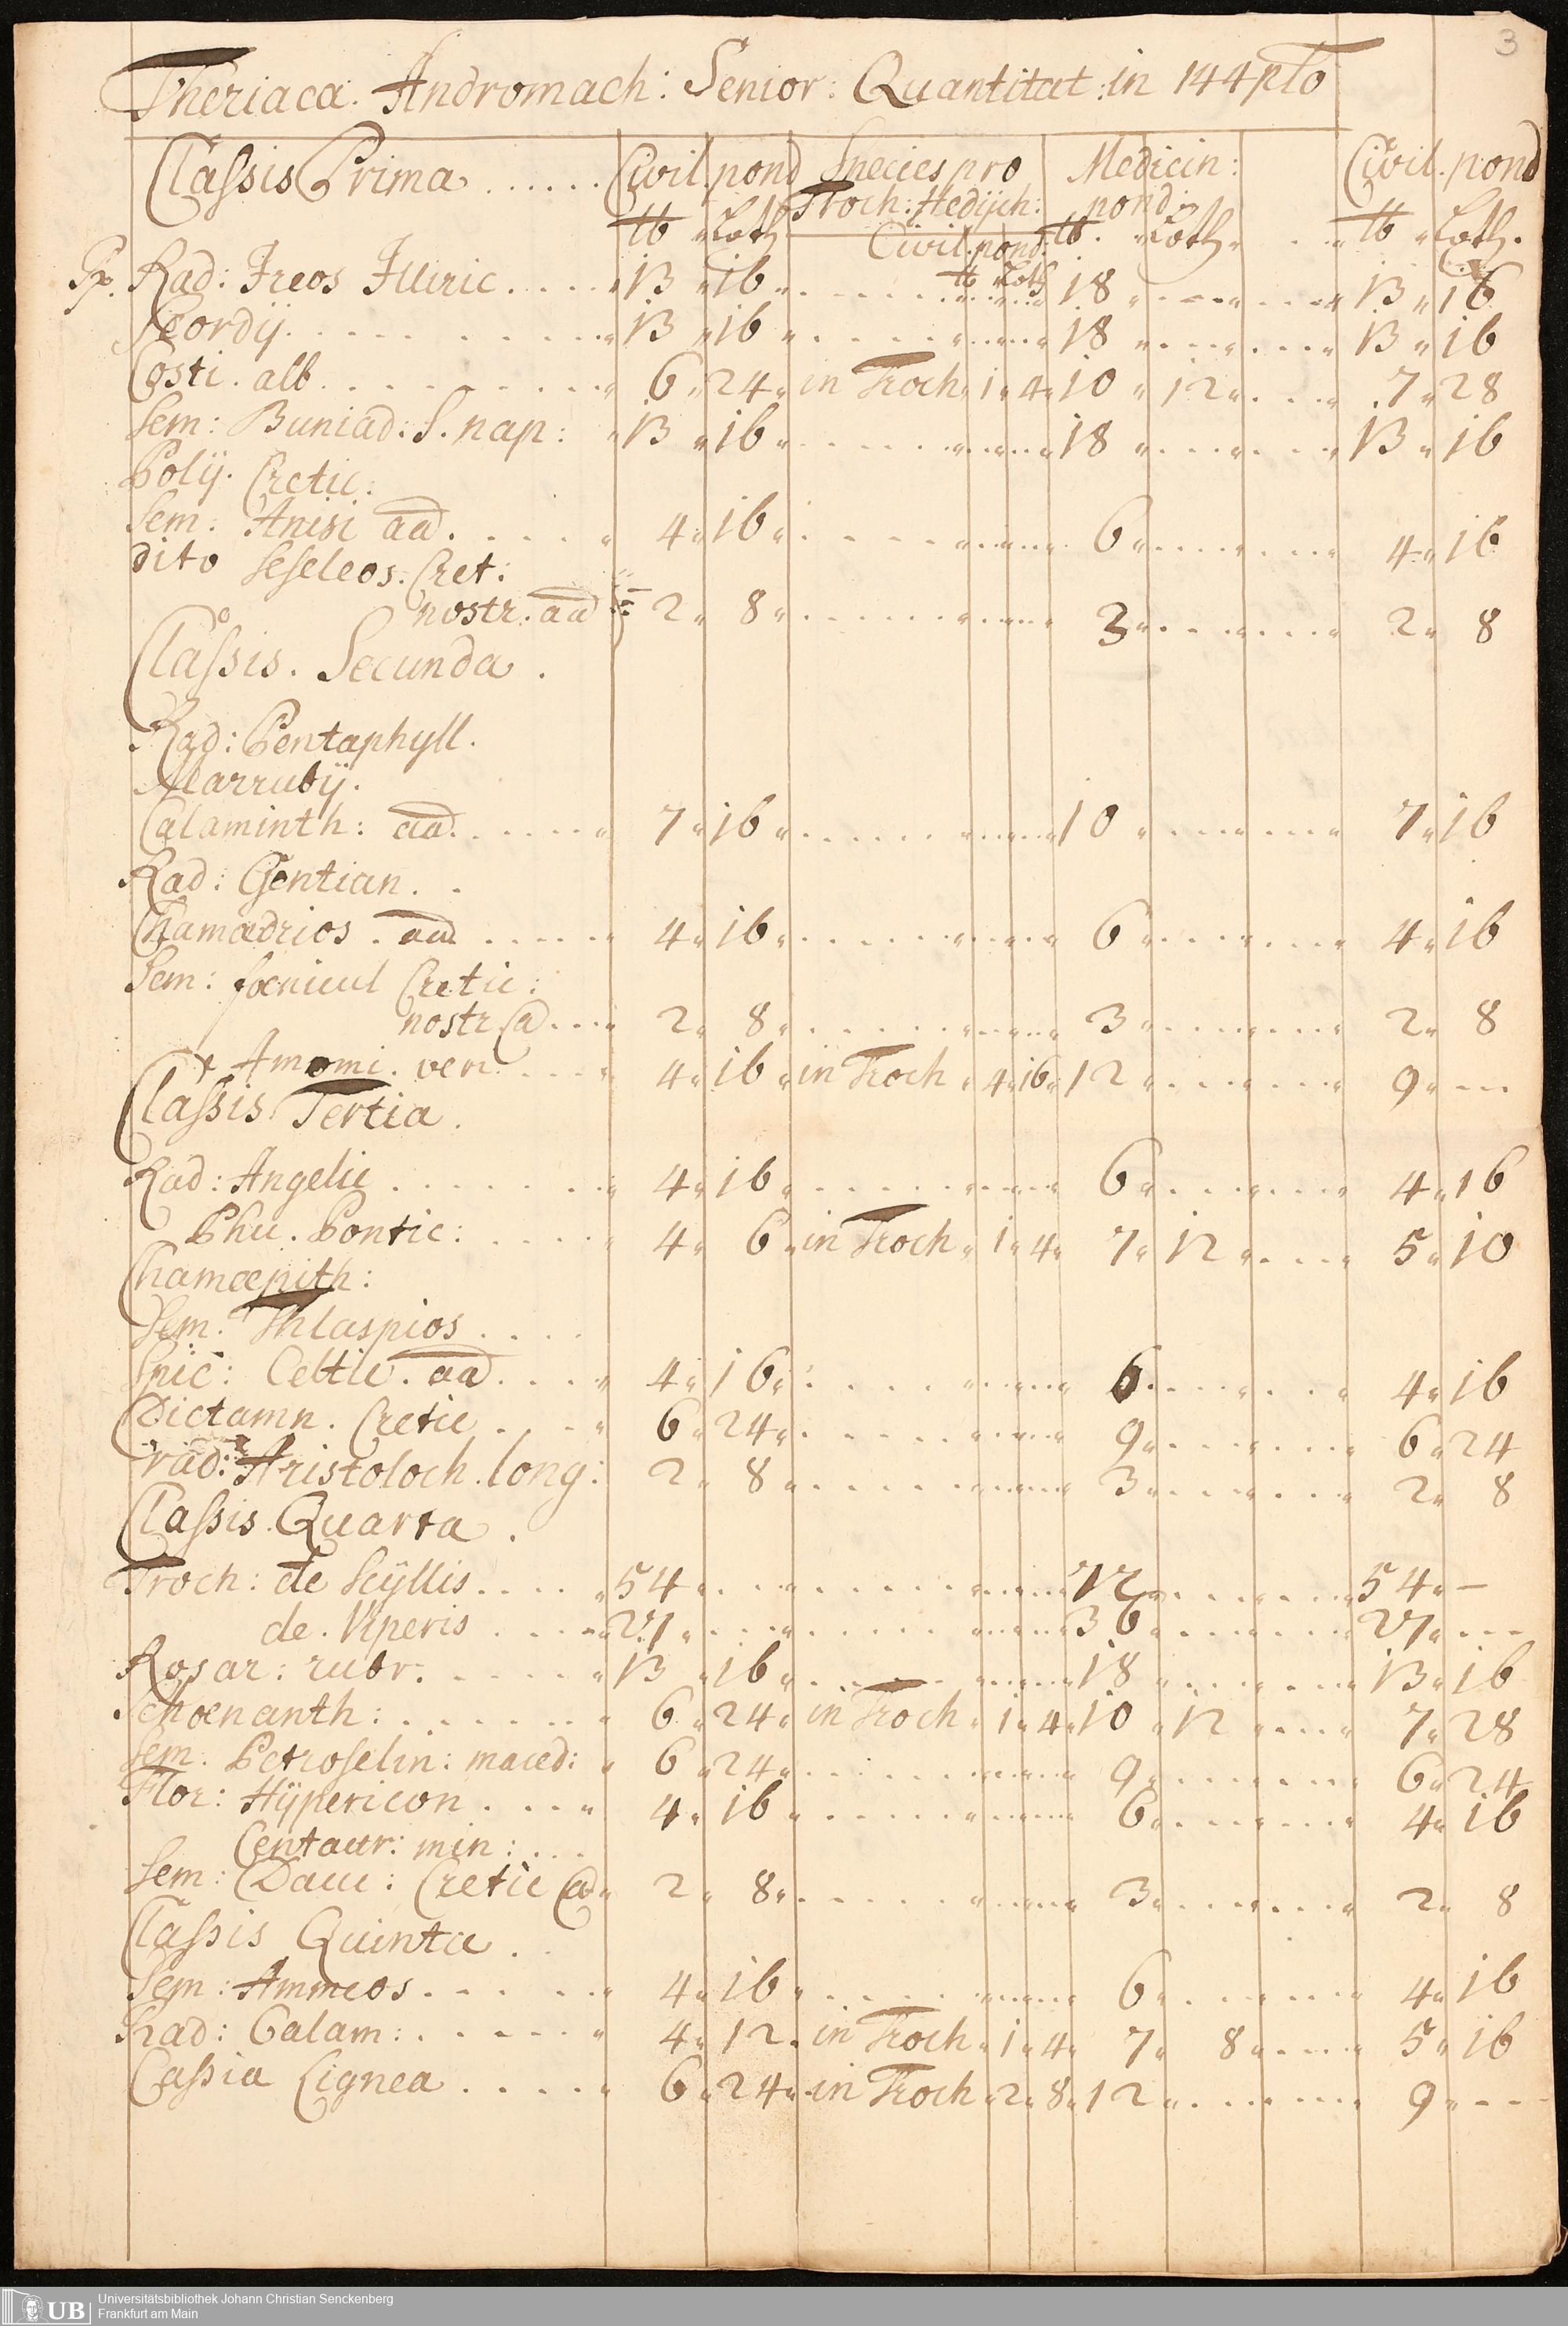 3
Theriaca. Andromach: Senior: Quantitat: in 144plo
Classis Prima ...... Civil. pond Species pro Medicin: Civil. pond
Troch: Hedijch: pond:
℔ Loth Civil. pond: ℔. Loth ℔ Loth.
℔ Loth
Rad: Ireos Illiric..... 13 16 18 13 16
Scordij. 13 16 18 13 16
Costi. alb. 6 24 in Troch 1 4 10 12 7 28
Sem: Buniad: S. nap: 13 16 18 13 16
Polij. Cretic:
Sem: Anisi aa. 4 16 6 4 16
dito Seseleos. Cret:
nostr. aa 2 8 3 2 8
Classis. Secunda.
Rad: Pentaphyll.
Marrubij.
Calaminth: aa. 7 16 10 7 16
Rad: Gentian.
Chamædrios. aa 4 16 6 4 16
Sem: fœnicul Cretic:
nostr @ 2 8 3 2 8
+ Amomi. ver. 4 16 in Troch 4 16 12 9 ---
Classis Tertia.
Rad: Angelic 4 16 6 4 16
Phu. Pontic: 4 6 in Troch 1 4 7 12 5 10
Chamœpith:
Sem: Thlaspios
Spic: Celtic. aa 4 16 6 4 16
Dictamn. Cretic 6 24 9 6 24
rad: Aristoloch. long: 2 8 3 2 8
Classis. Quarta.
Troch: de Scÿllis 54 72 54 -
de. Viperis 27 36 27 ---
Rosar: rubr. 13 16 18 13 16
Schœnanth: 6 24 in Troch 1 4 10 12 7 28
Sem. Petroselin: maced: 6 24 9 6 24
Flor: Hÿpericon 4 16 6 4 16
Centaur: min:
Sem: Dauc: Cretic @ 2 8 3 2 8
Classis Quinta.
Sem: Ammeos 4 16 6 4 16
Rad: Calam: 4 12 in Troch 1 4 7 8 5 16
Cassia Lignea 6 24 in Troch 2 8 12 9 ---
UB Universitätsbibliothek Johann Christian Senckenberg
Frankfurt am Main